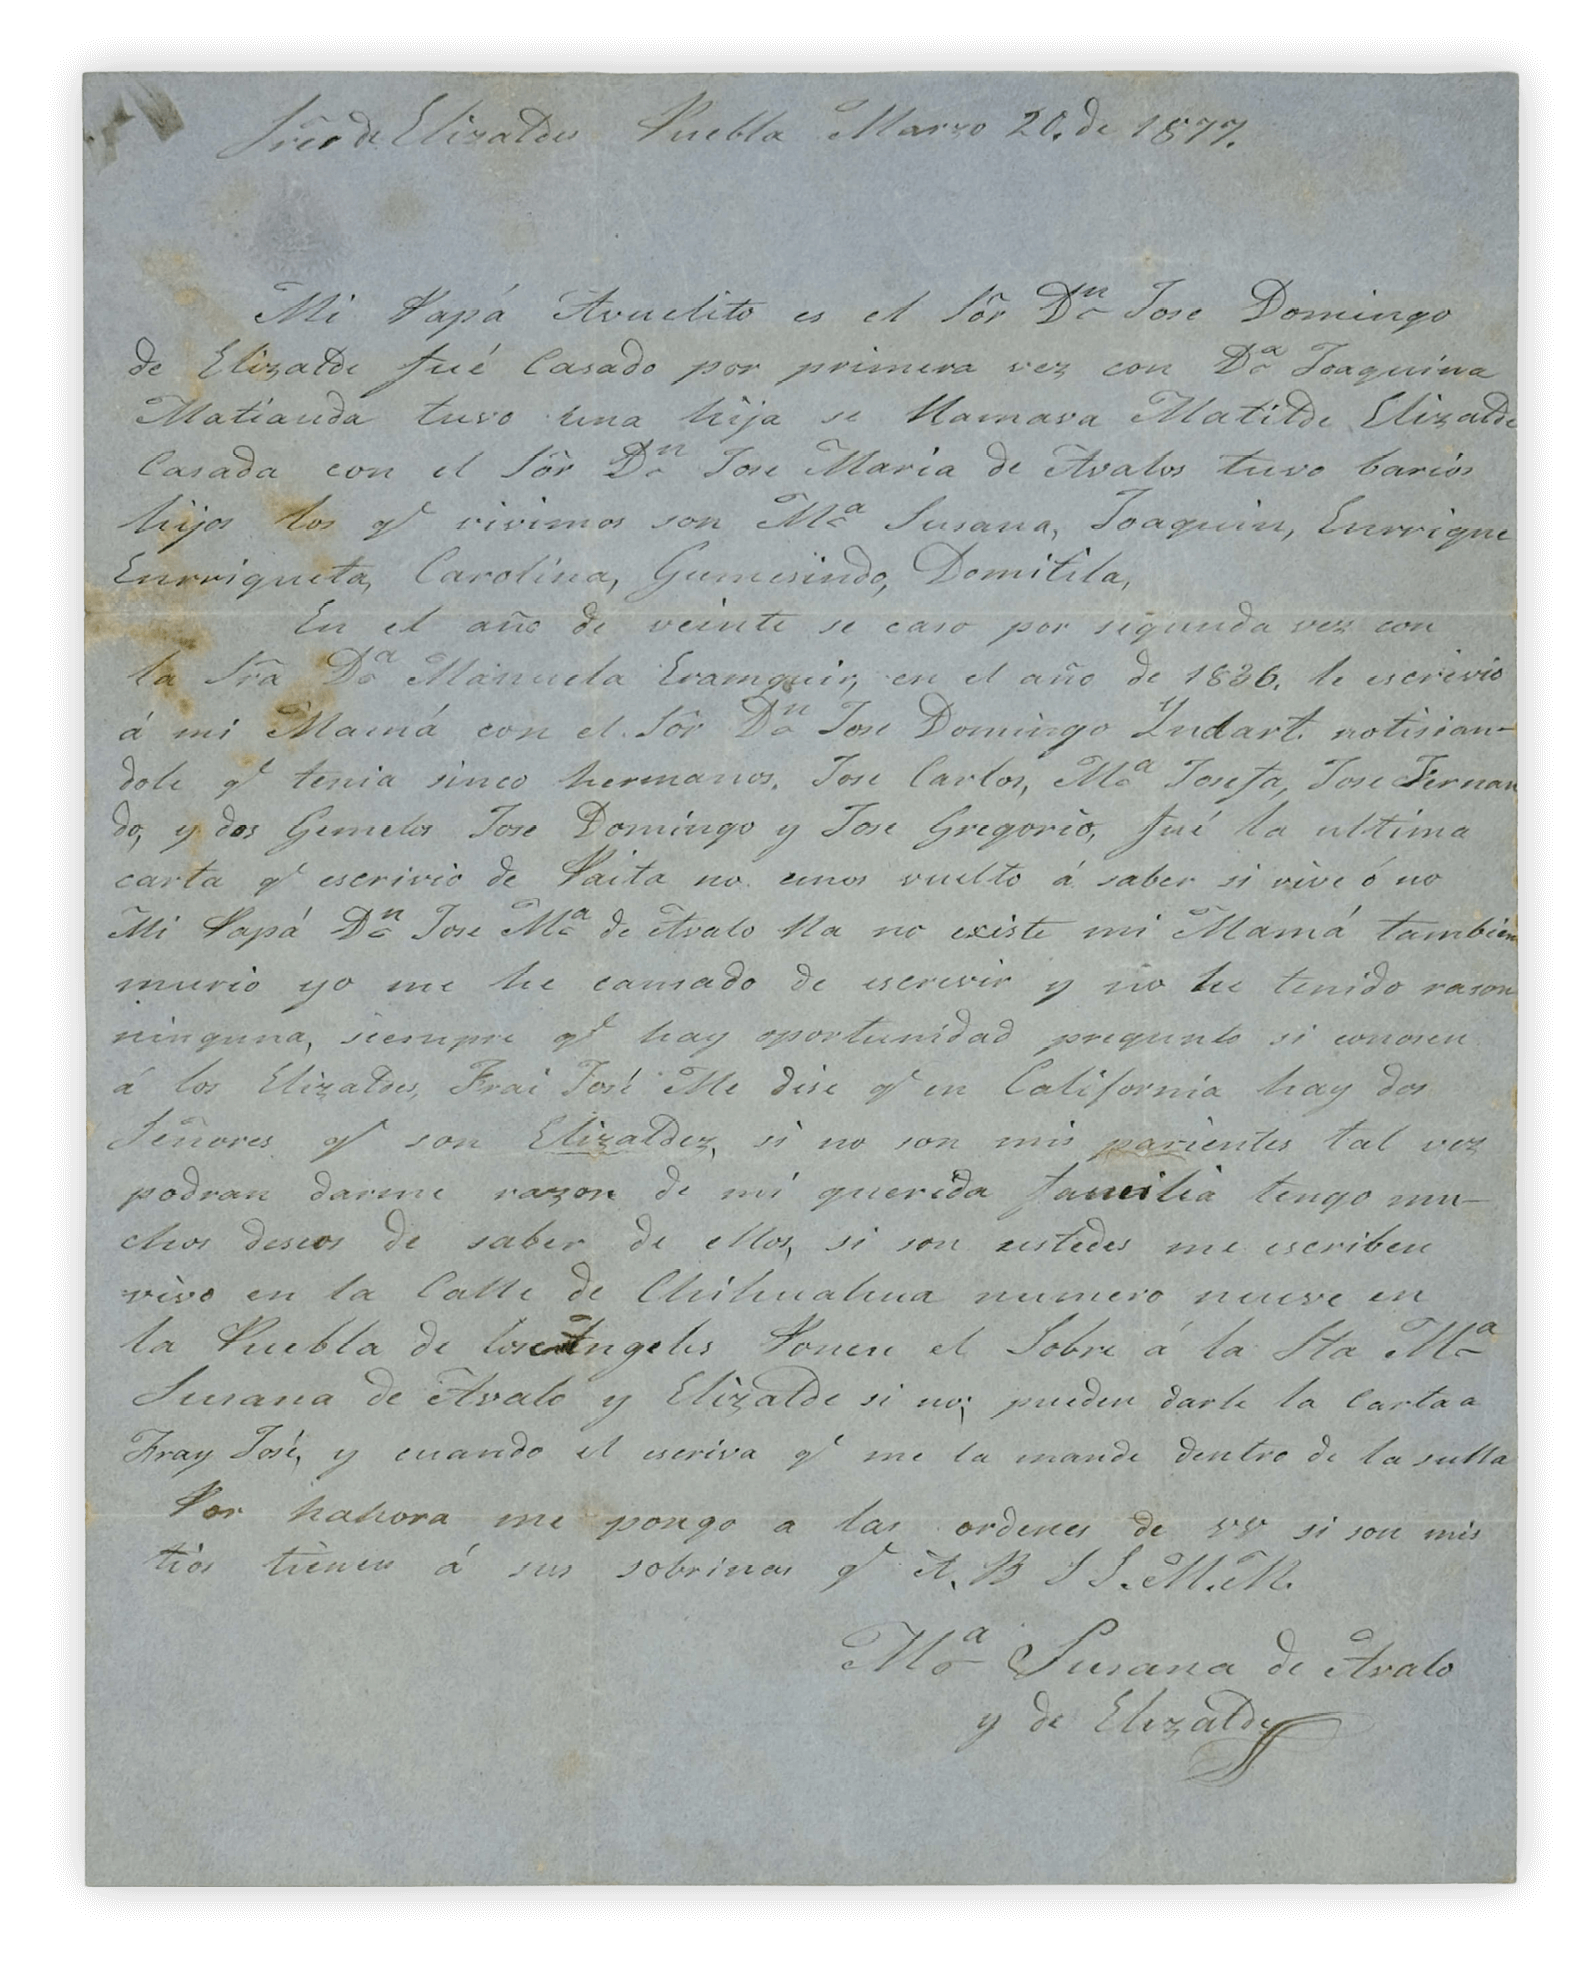 Sres de Elizaldes Puebla Marzo 20. de 1877.
Mi Papá Avuelito es el Sõr Dn Jose Domingo
de Elizalde fué Casado por primera vez con Da Joaquina
Matianda tuvo una hija se llamava Matilde Elizalde
Casada con el Sõr Dn Jose Maria de Avalos tuvo barios
hijos los qe vivimos son Ma Susana, Joaquin, Enrrique
Enrriqueta, Carolina, Gumesindo, Domitila,
En el año de veinte se caso por segunda vez con
la Sra Da Manuela Eramguir, en el año de 1836. le escrivio
á mi Mamá con el Sõr Dn Jose Domingo Yndart. notisian-
dole qe tenia sinco hermanos, Jose Carlos, Ma Josefa, Jose Fernan
do, y dos Gemelos Jose Domingo y Jose Gregorio, fué la ultima
carta qe escrivio de Paita no emos vuelto á saber si vive ó no
Mi Papá Dn Jose Ma de Avalo lla no existe mi Mamá tambien
murio yo me he cansado de escrevir y no he tenido rason
ninguna, siempre qe hay oportunidad pregunto si conosen
á los Elizaldes, Frai José Me dise qe en California hay dos
Señores qe son Elizaldez, si no son mis parientes tal vez
podran darme razon de mi querida familia tengo mu-
chos deseos de saber de ellos, si son ustedes me escriben
vivo en la Calle de Chihuahua numero nueve en
la Puebla de los Angeles Ponen el Sobre á la Sta Ma
Susana de Avalo y Elizalde si no; pueden darle la Carta a
Fray José, y cuando el escriva qe me la mande dentro de la sulla
Por hahora me pongo a las ordenes de VV si son mis
tios tienen á sus sobrinas qe A. B S S. M. M.
Ma Susana de Avalo
y de Elizalde